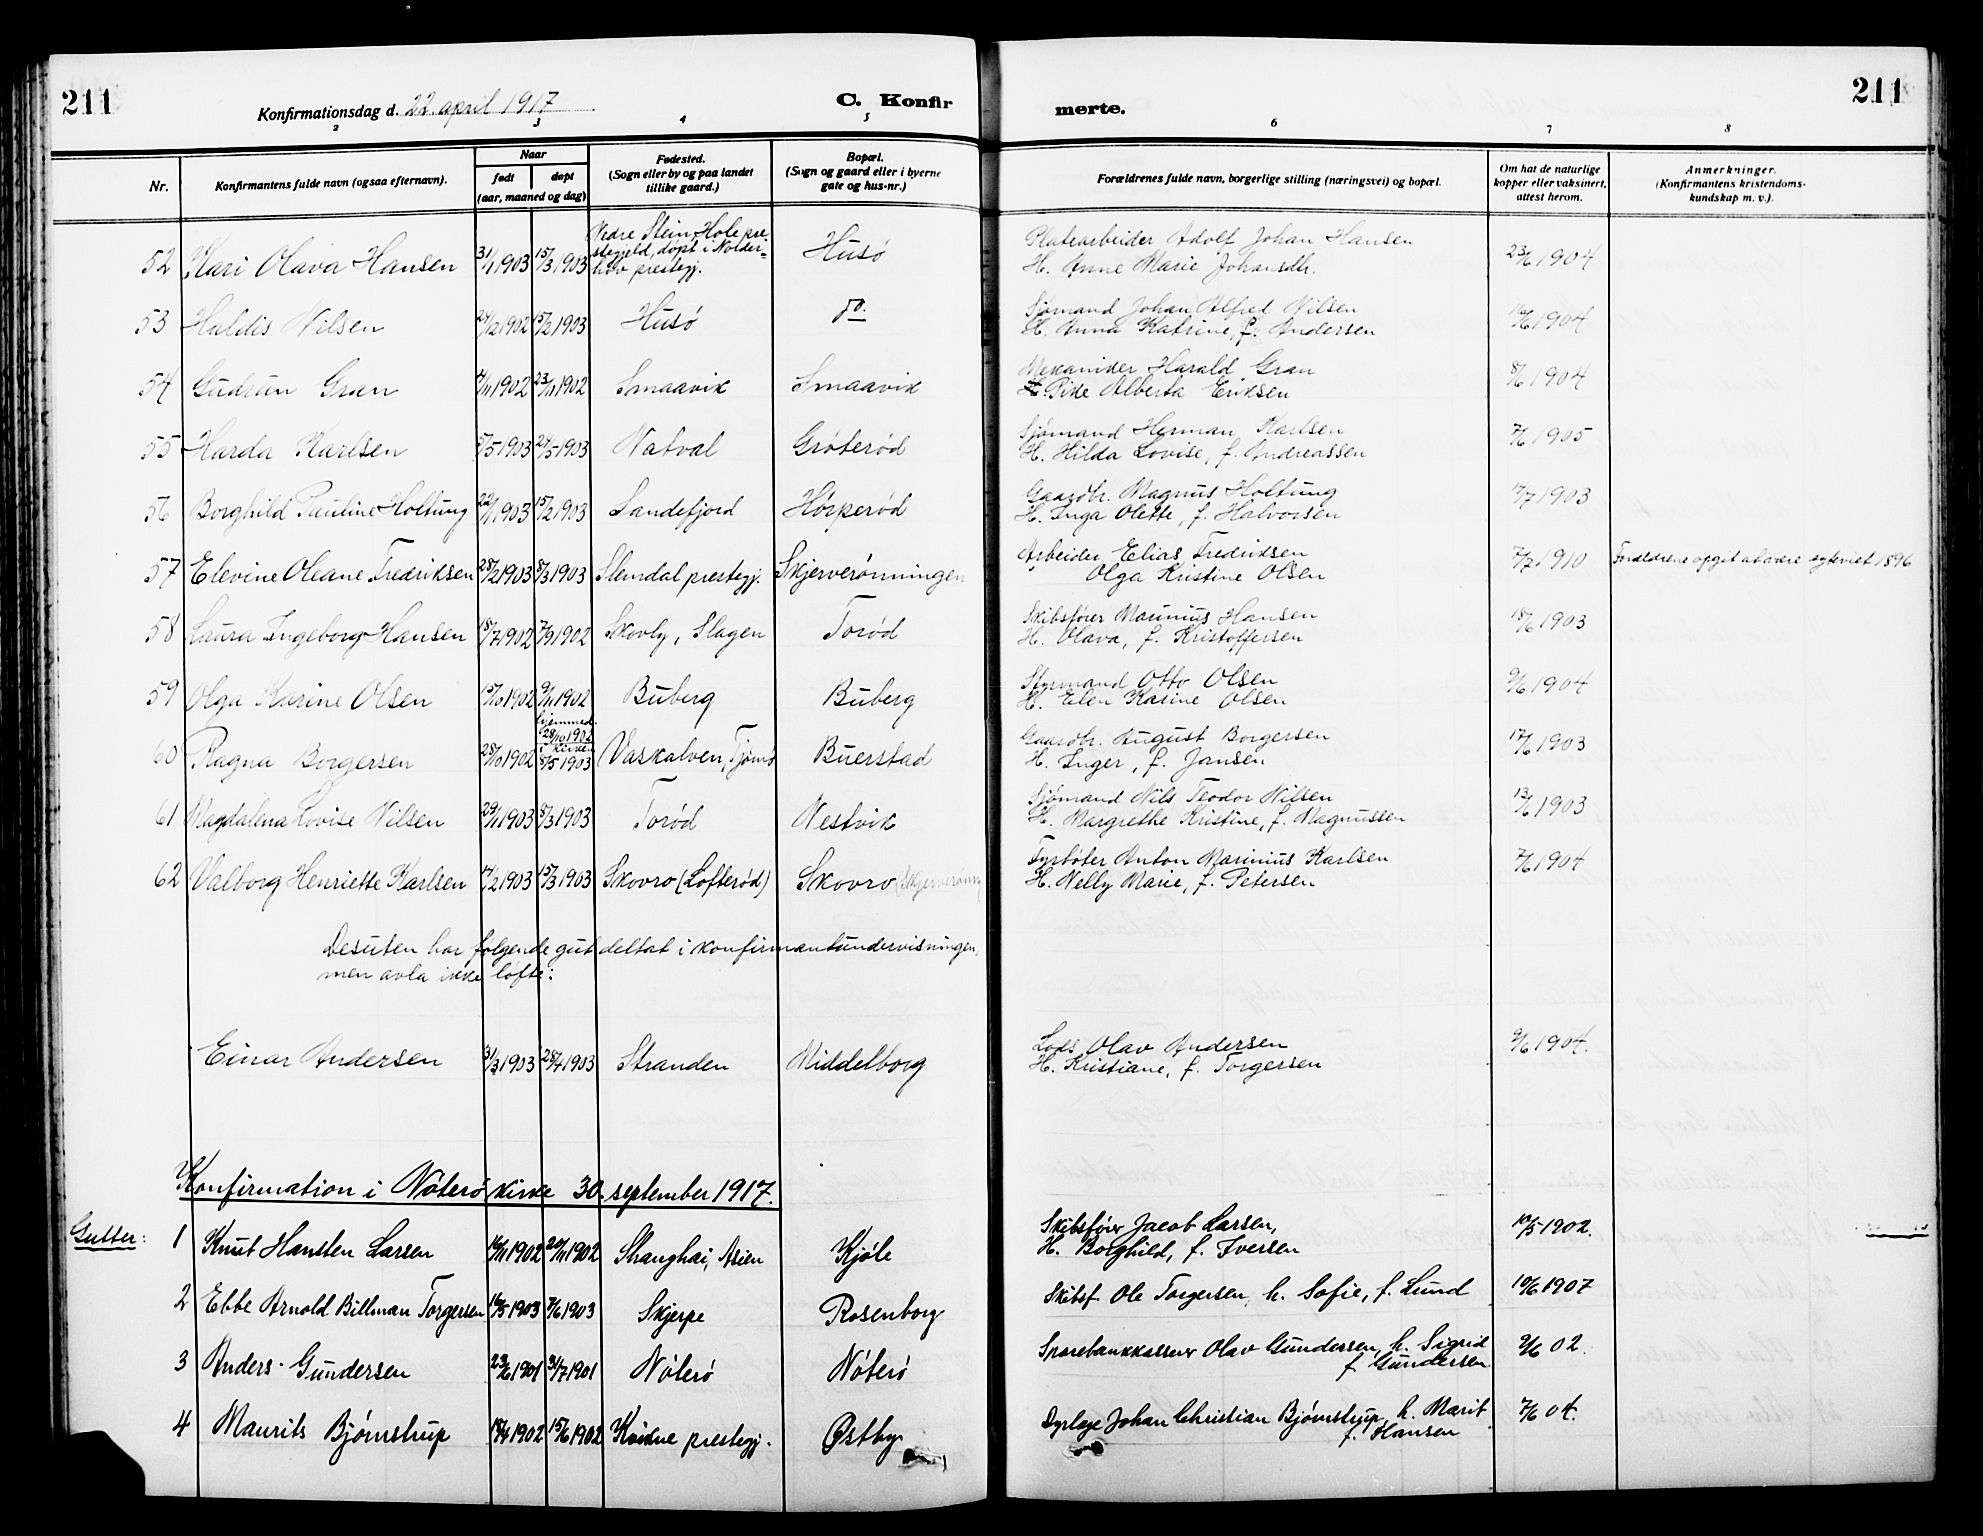 211
Konfirmationsdag d. 22. april 1917
C. Konfir
merte.
211
2 3 4 5 6 7 8
Nr.
Konfirmantens fulde navn (ogsaa efternavn).
Naar
født
døpt
(aar, maaned og dag)
Fødested.
(Sogn eller by og paa landet
tillike gaard.)
Bopæl.
(Sogn og gaard eller i byerne
gate og hus-nr.)
Forældrenes fulde navn, borgerlige stilling (næringsvei) og bopæl.
Om hat de naturlige
kopper eller vaksinert,
attest herom.
Anmerkninger.
(Konfirmantens kristendoms-
kundskap m. v.).
52 Kari Olava Hansen 31/1 1903 15/3 1903 Nedre Stein Hole pre
stegjeld, døpt i Norder-
hov prestegj. Husö Platearbeider Adolf Johan Hansen
H. Anne Marie Johansdtr. 23/6 1904
53 Haldis Nilsen 24/12 1902 15/2 1903 Husö do. Sjömand Johan Alfred Nilsen
H. Anna Katrine, f. Andersen 16/6 1904
54 Gudrun Gran 4/11 1902 23/11 1902 Smaavik Smaavik Mekaniker Harald Gran
Pike Alberta Eriksen 8/6 1904
55 Harda Karlsen 5/5 1903 24/5 1903 Natval Gröteröd Sjömand Herman Karlsen
H. Hilda Lovise, f. Andreassen 7/6 1905
56 Borghild Pauline Holtung 22/1 1903 15/2 1903 Sandefjord Hörperöd Gaardbr. Magnus Holtung
H. Inga Olette, f. Halvorsen 17/7 1903
57 Elevine Oleane Fredriksen 28/2 1903 8/3 1903 Slemdal prestegj. Skjerverönningen Arbeider Elias Fredriksen
Olga Kristine Olsen 7/7 1910 Forældrene opgit at være egteviet 1896
58 Laura Ingeborg Hansen 18/7 1902 7/9 1902 Skovly, Slagen Toröd Skibsförer Marinius Hansen
H. Olava, f. Kristoffersen 18/6 1903
59 Olga Karine Olsen 15/10 1902 9/11 1902 Buberg Buberg Styrmand Otto Olsen
H. Elen Karine Olsen 9/6 1904
60 Ragna Borgersen 28/10 1902 hjemmed.
28/10 1902
i kirken
8/5 1903 Vaskalven, Tjömö Buerstad Gaardbr. August Borgersen
H. Inger, f. Jansen 17/6 1903
61 Magdalena Lovise Nilsen 29/1 1903 8/3 1903 Toröd Nestvik Sjömand Nils Teodor Nilsen
H. Margrethe Kristine, f. Magnussen 13/6 1903
62 Valborg Henriette Karlsen 14/2 1903 15/3 1903 Skovro (Lofteröd) Skovro (Skjerverönn Fyrböter Anton Marinius Karlsen
H. Nelly Marie, f. Petersen 7/6 1904
Desuten har følgende gut deltat i konfirmantundervisningen,
men avla ikke løfte:
Einar Andersen 31/3 1903 28/4 1903 Stranden Middelborg Lods Olav Andersen
H. Kristiane, f. Torgersen 9/6 1904.
Konfirmation i Nöterö kirke 30 september 1917.
Gutter:
1 Knut Hansten Larsen 16/11 1902 20/11 1902 Shanghai, Asien Kjöle Skibsförer Jacob Larsen,
H. Borghild, f. Iversen 5 1902.
2 Ebbe Arnold Billman Torgersen 16/5 1903 7/6 1903 Skjerpe Rosenborg Skibsf. Ole Torgersen, h. Sofie, f. Lund 10/6 1907
3 Anders Gundersen 23/6 1901 31/7 1901 Nöterö Nöterö Sparebankkasserer Olav Gundersen, h. Sigrid
f. Gundersen 9/6 02.
4 Maurits Bjørnstrup 18/4 1902 15/6 1902 Kvikne prestegj. Østby Dyrlæge Johan Christian Bjørnstrup, h. Marit
f. Hansen 7/6 04.